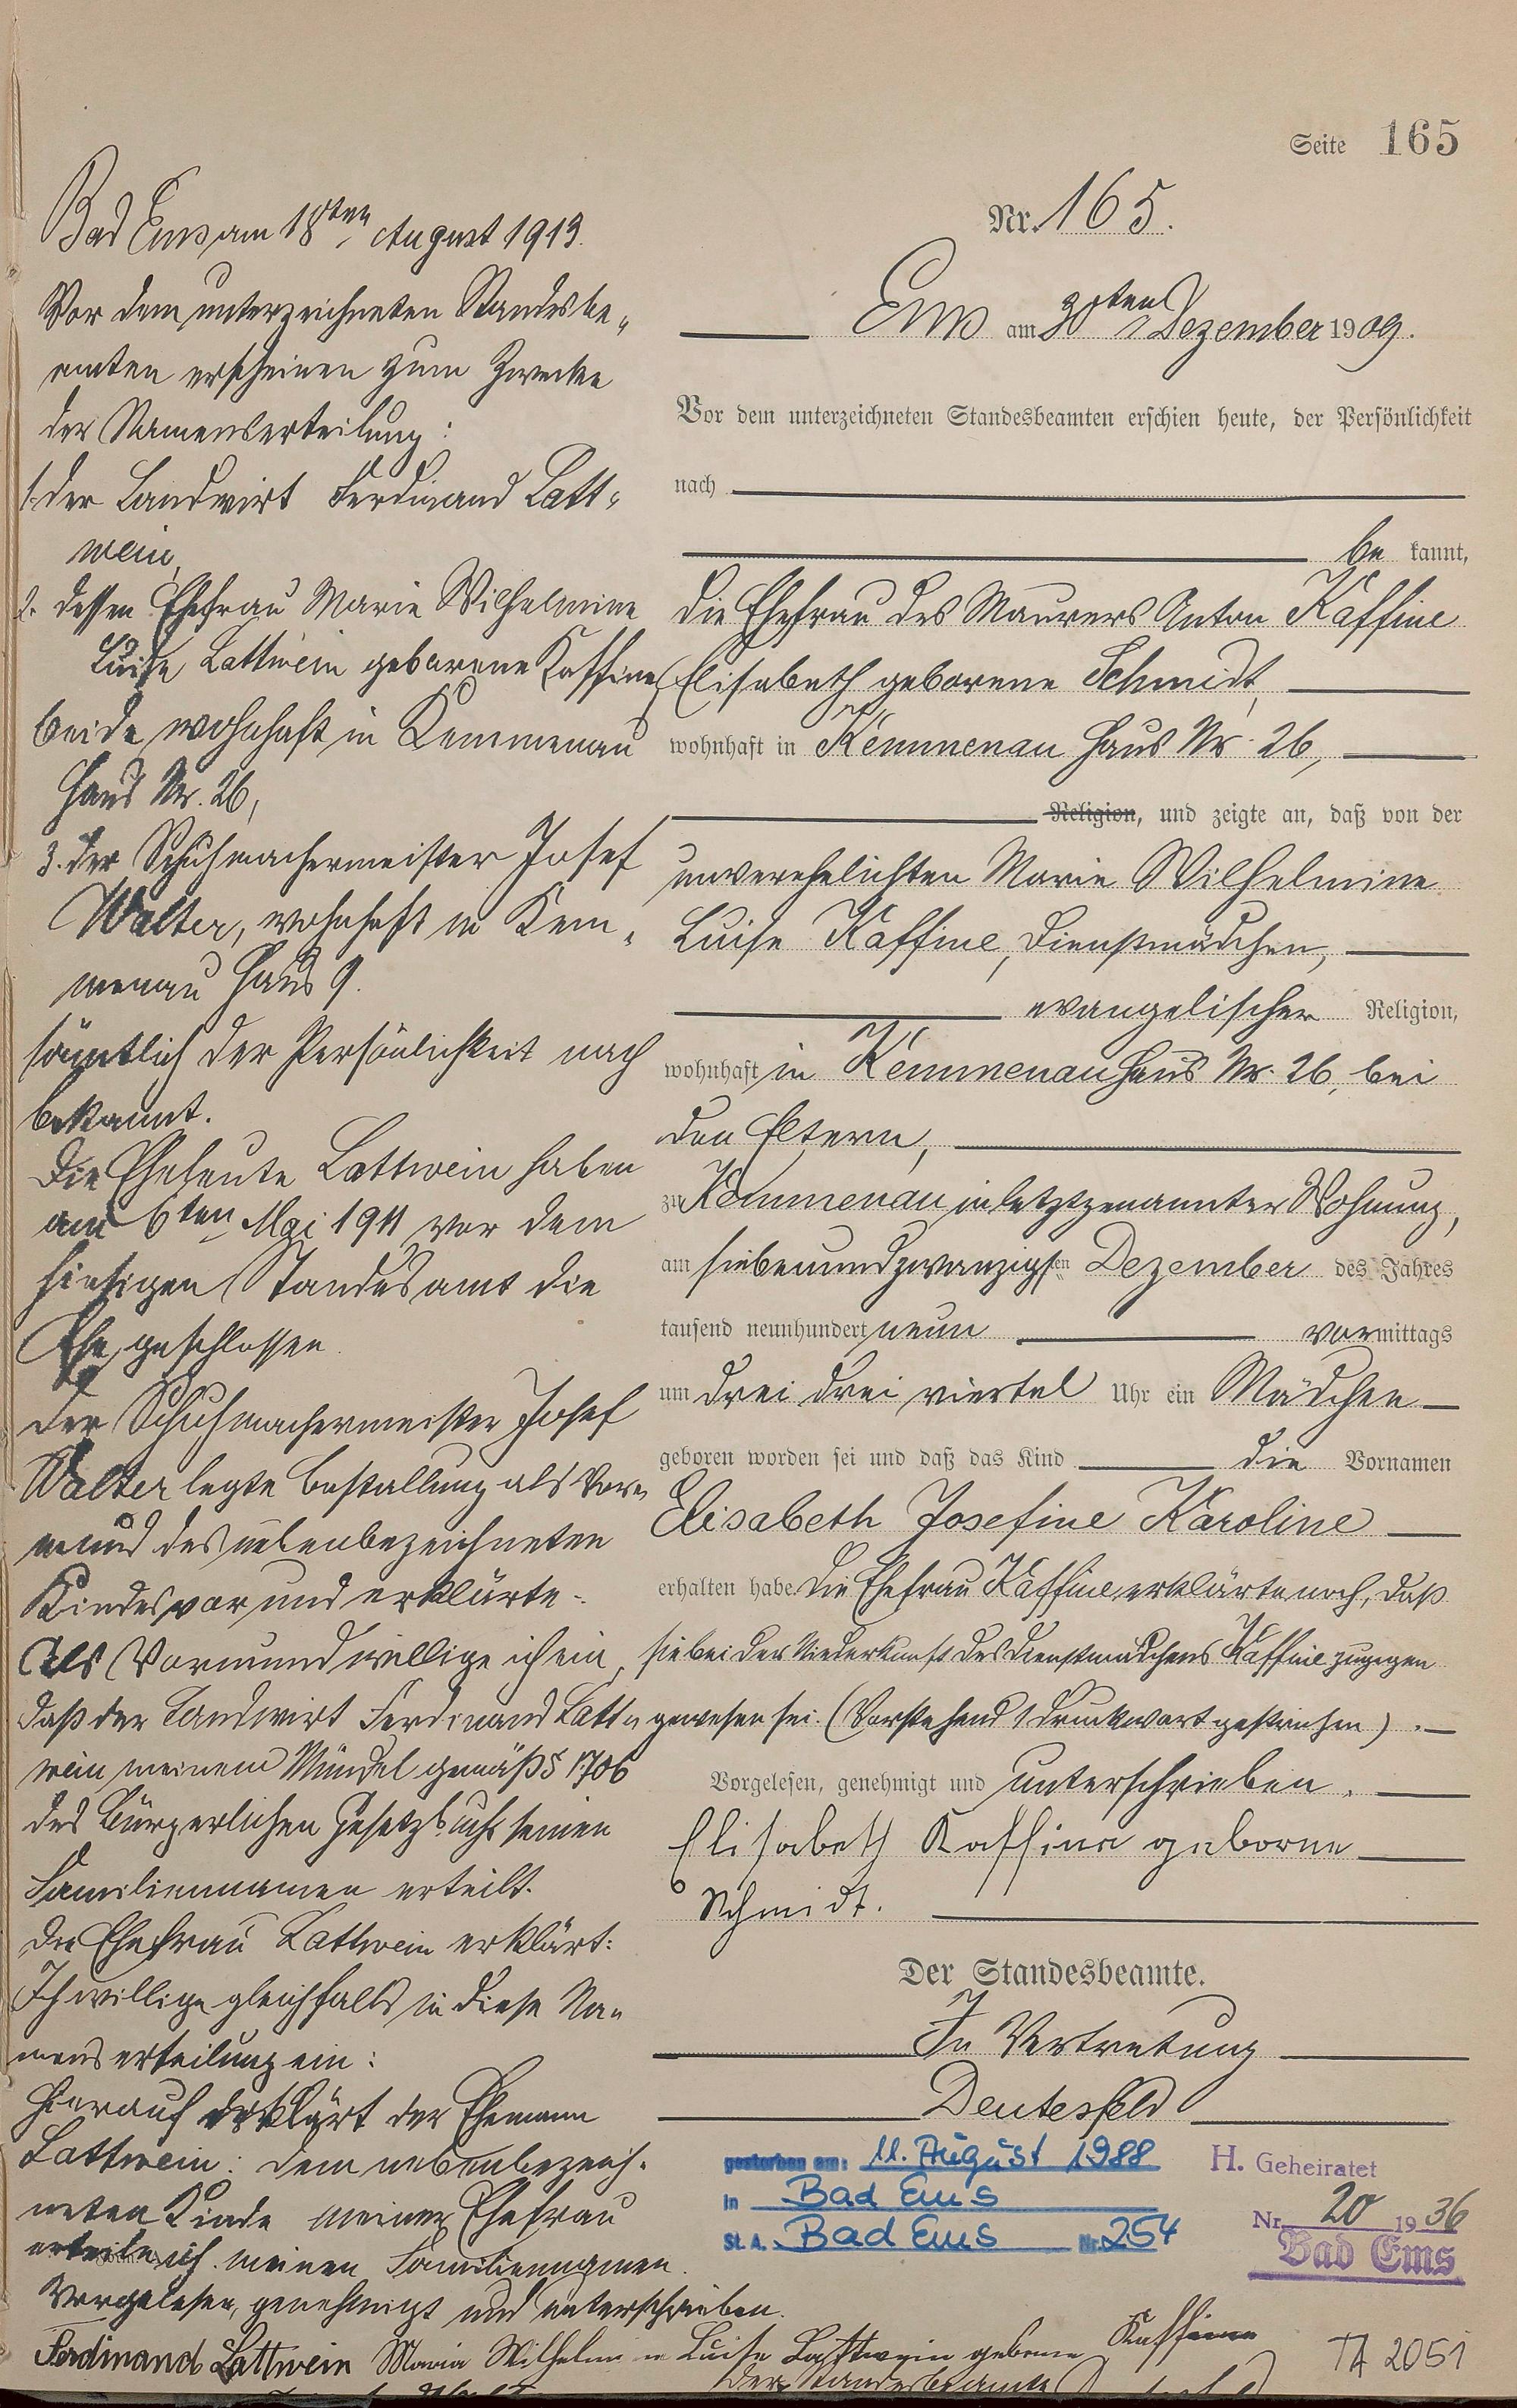 Seite 165
Nr. 165.
Ems am 30ten Dezember 1909.
Vor dem unterzeichneten Standesbeamten erschien heute, der Persönlichkeit
nach
be kannt,
die Ehefrau des Maurers Anton Kaffine
Elisabeth geborene Schmidt,
wohnhaft in Kemmenau Haus Nr. 26,
Religion, und zeigte an, daß von der
unverehelichten Marie Wilhelmine
Luise Kaffine, Dienstmädchen,
evangelischer Religion,
wohnhaft in Kemmenau Haus Nr. 26, bei
den Eltern,
zu Kemmenau in letztgenannter Wohnung,
am siebenundzwanzigsten Dezember des Jahres
tausend neunhundert neun vormittags
um drei drei viertel Uhr ein Mädchen
geboren worden sei und daß das Kind die Vornamen
Elisabeth Josefine Karoline
erhalten habe. Die Ehefrau Kaffine erklärte noch, daß
sie bei der Niederkunft des Dienstmädchens Kaffine zugegen
gewesen sei. (Vorstehend 1 Druckwort gestrichen).
Vorgelesen, genehmigt und unterschrieben.
Elisabeth Kaffine geborne
Schmidt.
Der Standesbeamte.
In Vertretung
Deutesfeld
gestorben am: 11. August 1988
in Bad Ems
St. A. Bad Ems Nr. 254
H. Geheiratet
Nr. 20 1936
Bad Ems
TA 2051
Bad Ems am 18ten August 1913.
Vor dem unterzeichneten Standesbe-
amten erscheinen zum Zwecke
der Namenserteilung:
1. der Landwirt Ferdinand Latt-
wein,
2. dessen Ehefrau Marie Wilhelmine
Luise Lattwein geborene Kaffine,
beide wohnhaft in Kemmenau
Haus Nr. 26,
3. der Schuhmachermeister Josef
Walter, wohnhaft in Kem-
menau Haus 9.
sämtlich der Persönlichkeit nach
bekannt.
Die Eheleute Lattwein haben
am 6ten Mai 1911 vor dem
hiesigen Standesamt die
Ehe geschlossen.
Der Schuhmachermeister Josef
Walter legte Bestallung als Vor-
mund des nebenbezeichneten
Kindes vor und erklärte:
Als Vormund willige ich ein,
daß der Landwirt Ferdinand Latt-
wein meinem Mündel gemäß § 1706
des Bürgerlichen Gesetzbuchs seinen
Familiennamen erteilt.
Die Ehefrau Lattwein erklärt:
Ich willige gleichfalls in diese Na-
menserteilung ein:
Hierauf erklärt der Ehemann
Lattwein: Dem nebenbezeich-
neten Kinde meiner Ehefrau
erteile ich meinen Familiennamen.
Vorgelesen, genehmigt und unterschrieben.
Ferdinand Lattwein Maria Wilhelmine Luise Lattwein geborne Kaffine
Der Standesbeamte